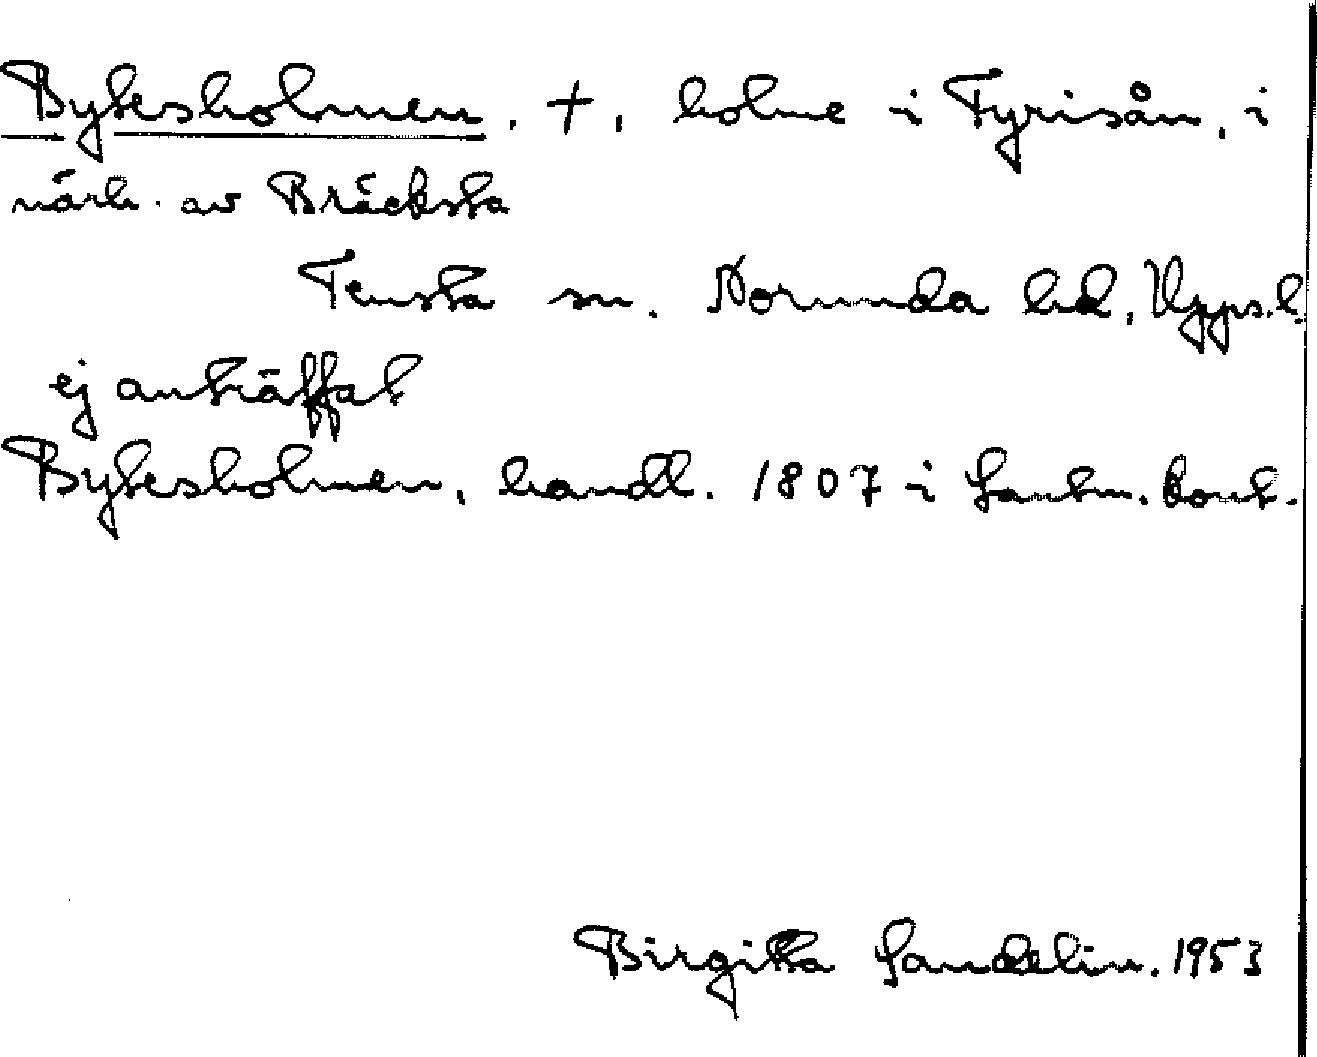 Bytesholmen, +, holme i Fyrisån, i
närh. av Bräcksta
Tensta sn. Norunda hd, Upps.l.
ej anträffat
Bytesholmen, handl. 1807 i Lantm.kont.
Birgitta Sandelin. 1953